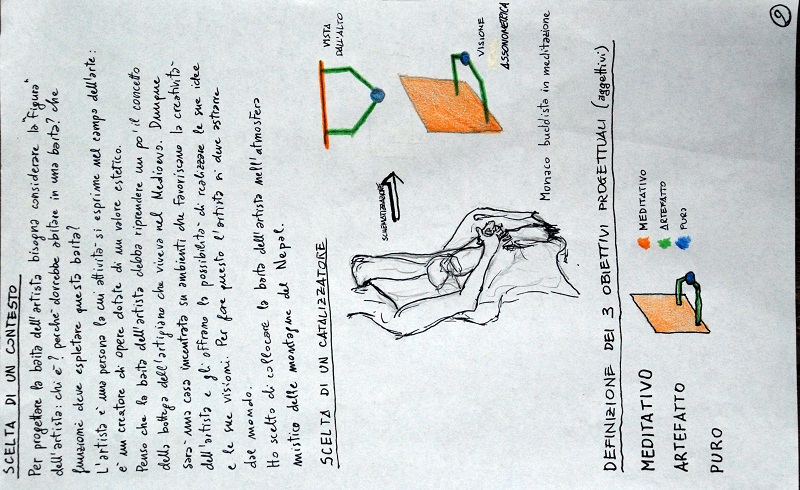 SCELTA DI UN CONTESTO
Per progettare la baita dell'artista bisogna considerare la "figura"
dell'artista: chi è? perché dovrebbe abitare in una baita? che
funzione deve espletare questa baita?
L'artista è una persona la cui attività si esprime nel campo dell'arte:
è un creatore di opere dotate di un valore estetico.
Penso che la baita dell'artista debba riprendere un po' il concetto
della bottega dell'artigiano che viveva nel Medioevo. Dunque
sarà una casa incentrata su ambienti che favoriscano la creatività
dell'artista e gli offrano la possibilità di realizzare le sue idee
e le sue visioni. Per fare questo l'artista si deve astrarre
dal mondo.
Ho scelto di collocare la baita dell'artista nell'atmosfera
mistica delle montagne del Nepal.
SCELTA DI UN CATALIZZATORE
SCHEMATIZZAZIONE
VISTA
DALL'ALTO
VISIONE
ASSONOMETRICA
Monaco buddista in meditazione
DEFINIZIONE DEI 3 OBIETTIVI PROGETTUALI (aggettivi)
MEDITATIVO
ARTEFATTO
PURO
MEDITATIVO
ARTEFATTO
PURO
2